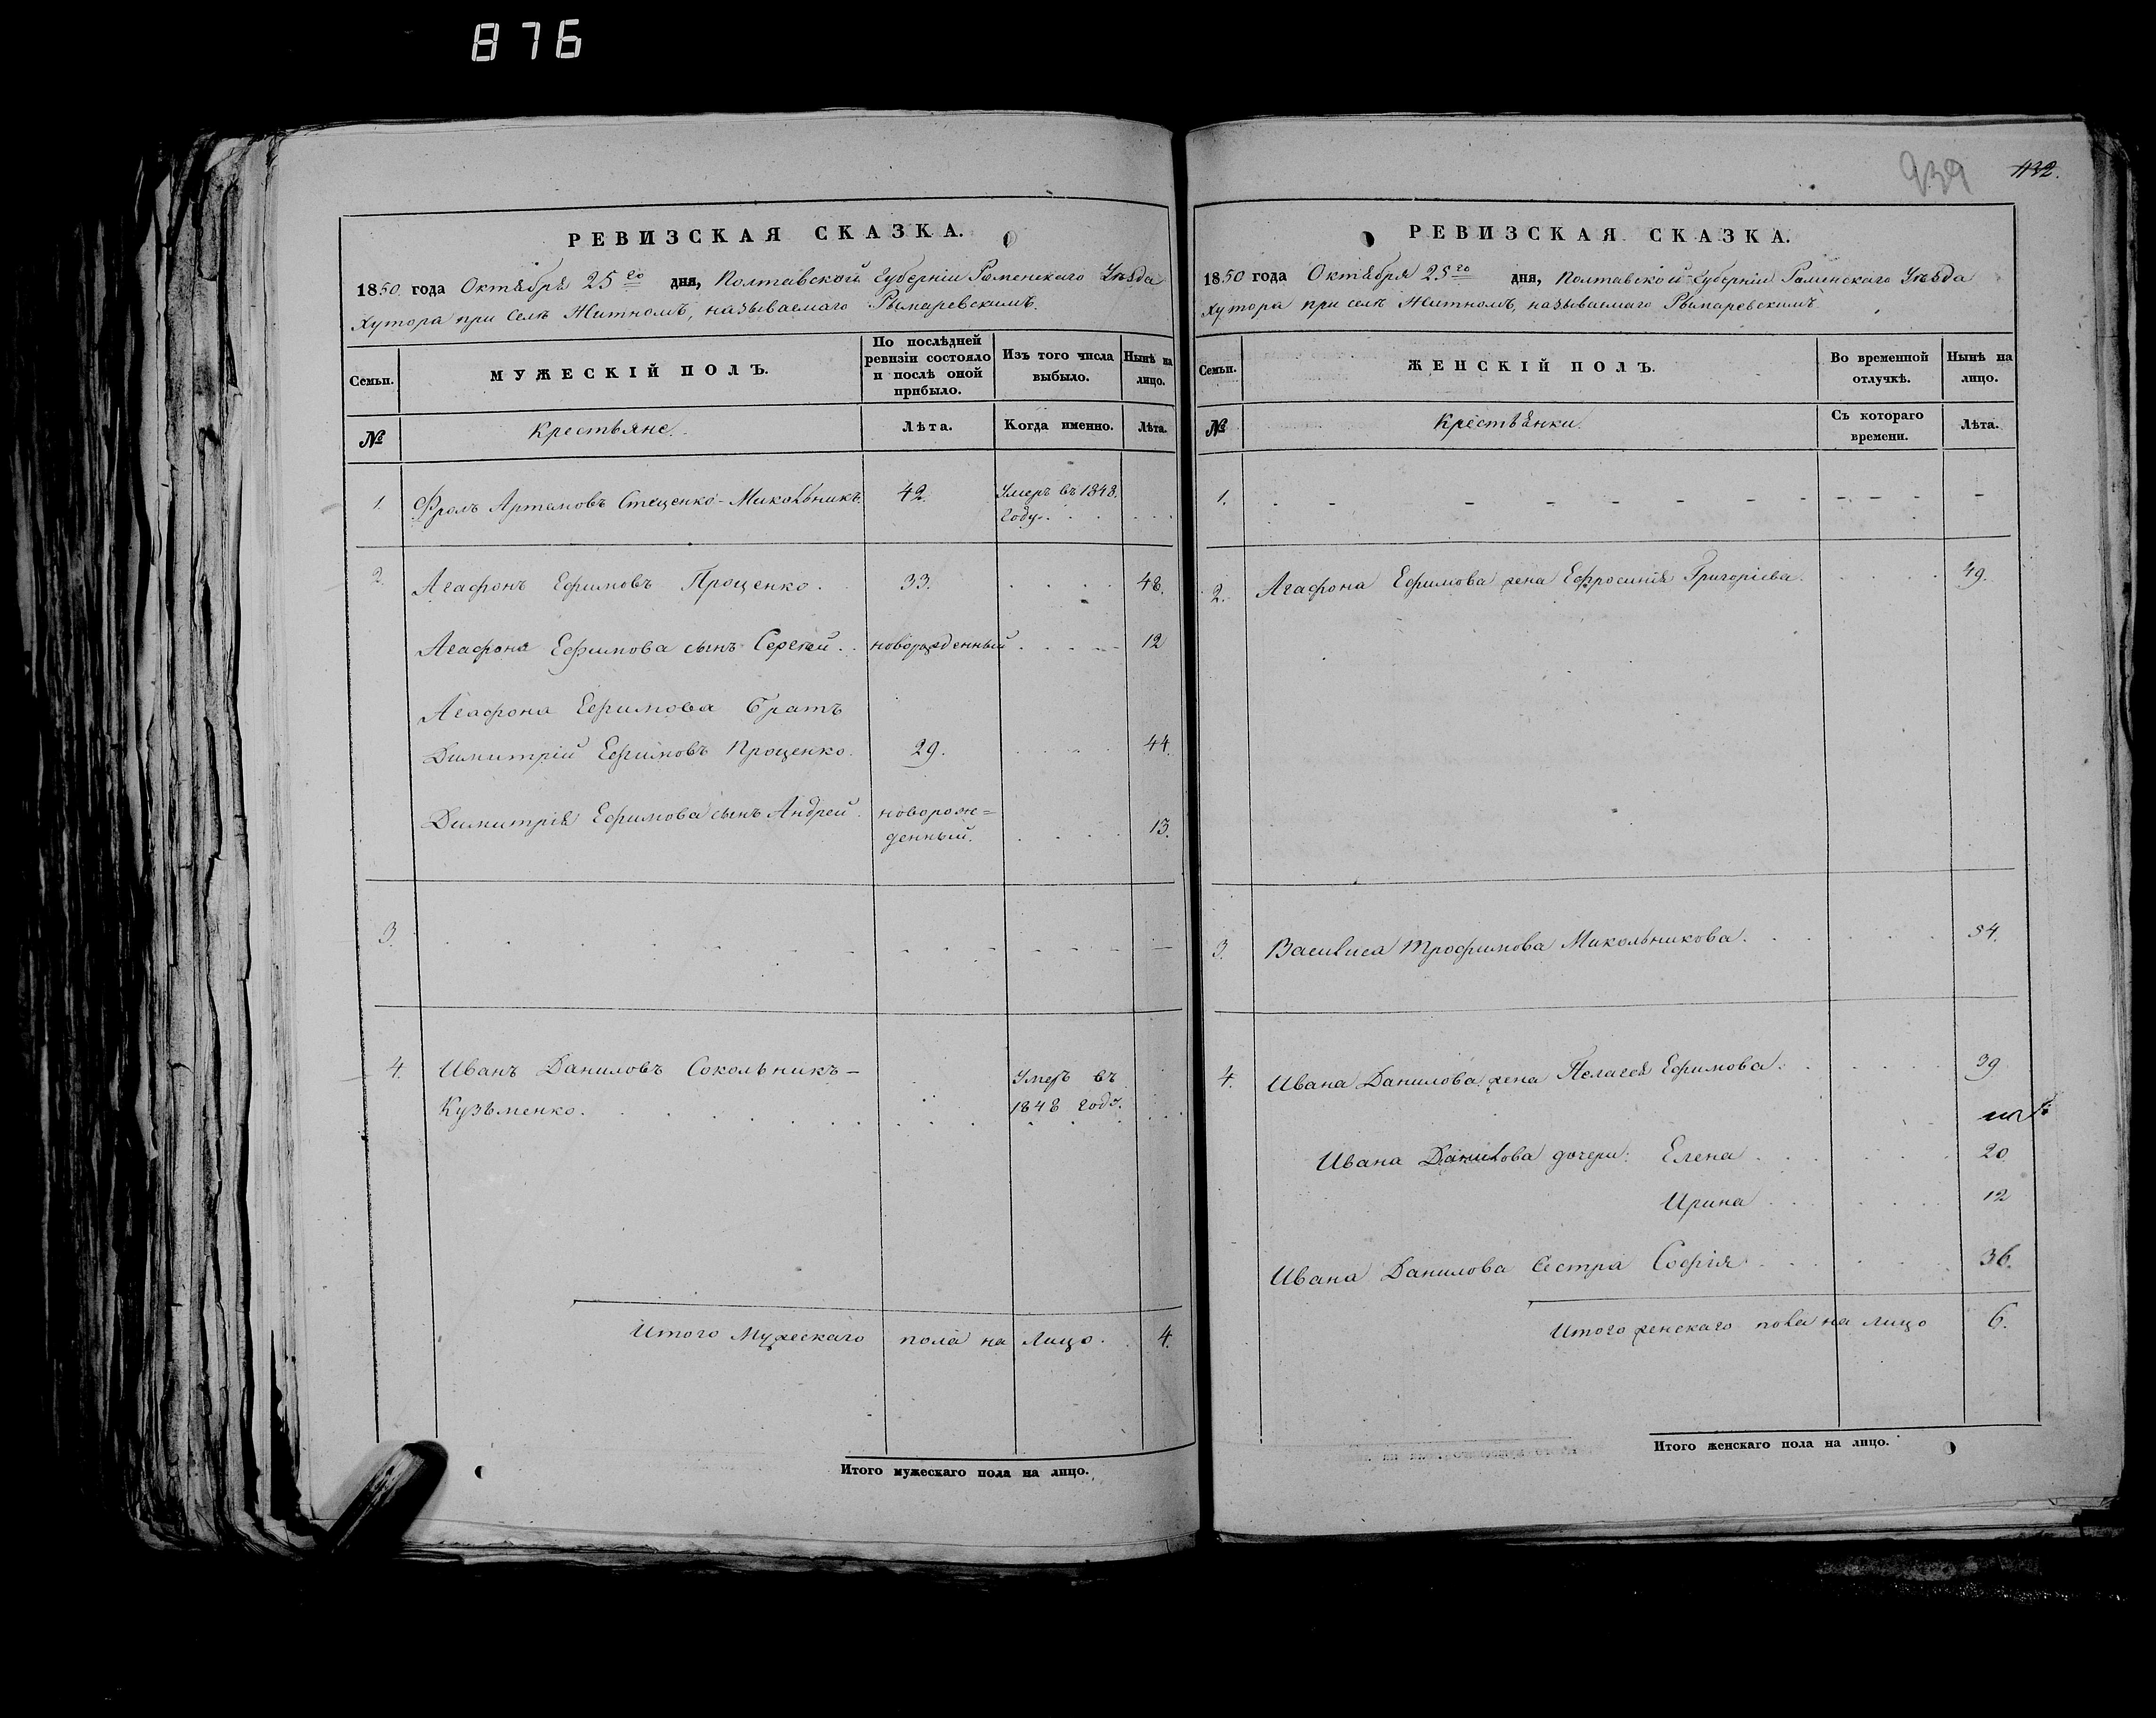 876
РЕВИЗСКАЯ СКАЗКА.
1850 года Октября 25го дня, Полтавской Губерніи Роменскаго Уѣзда
Хутора при селѣ Житномъ, называемаго Рымаревскимъ.
Семьи.
МУЖЕСКІЙ ПОЛЪ.
По послѣдней ревизіи состояло и послѣ оной прибыло.
Изъ того числа выбыло.
Нынѣ на лицо.
№
Крестьяне.
Лѣта.
Когда именно.
Лѣта.
1. Фролъ Артемовъ Стеценко-Микольникъ. 42. Умеръ въ 1848.
году.
2. Агафонъ Ефимовъ Проценко. 33. 48.
Агафона Ефимова сынъ Сергѣй. новорожденный 12
Агафона Ефимова братъ
Димитрій Ефимовъ Проценко. 29. 44.
Димитрія Ефимова сынъ Андрей. новорож=
денный. 13.
3.
4. Иванъ Даниловъ Сокольникъ- Умеръ въ
Кузьменко. 1848 году.
Итого Мужескаго пола на лицо. 4.
Итого мужескаго пола на лицо.
939 432.
РЕВИЗСКАЯ СКАЗКА.
1850 года Октября 25го дня, Полтавской Губерніи Роменскаго Уѣзда
Хутора при селѣ Житномъ, называемаго Рымаревскимъ
Семьи.
ЖЕНСКІЙ ПОЛЪ.
Во временной отлучкѣ.
Нынѣ на лицо.
№
Крестьянки.
Съ котораго времени.
Лѣта.
1.
2. Агафона Ефимова жена Ефросинія Григоріева. 49.
3. Василиса Трофимова Микольникова. 54.
4. Ивана Данилова жена Пелагея Ефимова. 39
Ивана Данилова дочери: Елена 20
Ирина 12
Ивана Данилова сестра Софія 36.
Итого женскаго пола на лицо 6.
Итого женскаго пола на лицо.